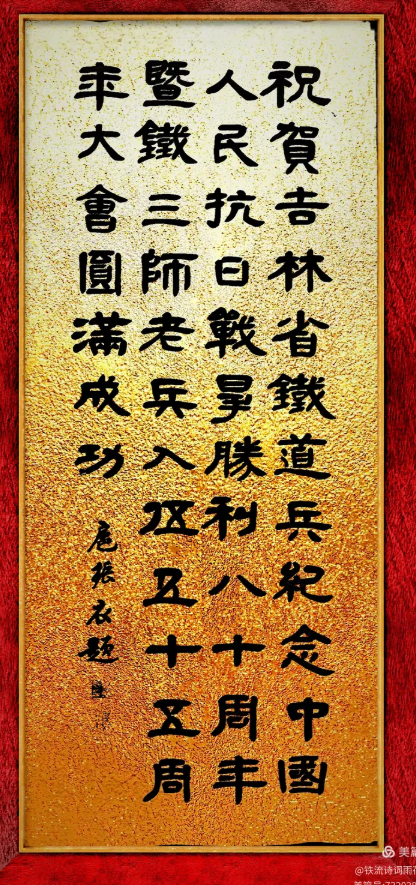 祝賀吉林省鐵道兵紀念中國
人民抗日戰爭勝利八十周年
暨鐵三師老兵入伍五十五周
年大會圓滿成功
扈振衣題
美篇
@铁流诗词雨